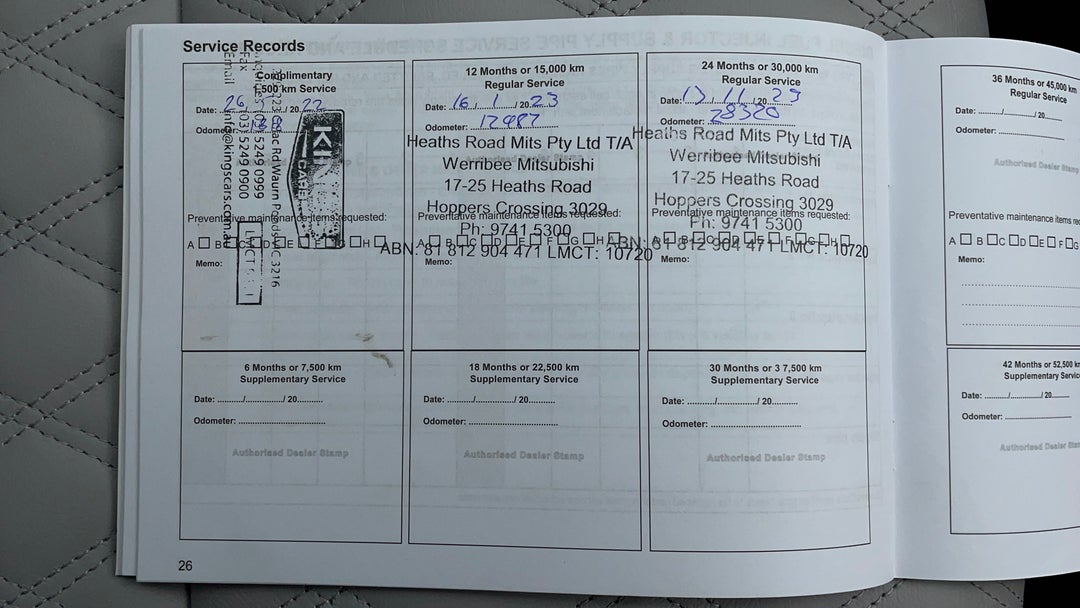 Service Records
Complimentary
1,500 km Service
Date: 26 / / 20 22
Odometer:
KINGS
CARS
Colac Rd Waurn Ponds VIC 3216
(03) 5249 0999
Fax (03) 5249 0900
Email info@kingscars.com.au
LMCT
Preventative maintenance items requested:
A B C D E F G H
Memo:
12 Months or 15,000 km
Regular Service
Date: 16 / 1 / 20 23
Odometer: 12487
Heaths Road Mits Pty Ltd T/A
Werribee Mitsubishi
17-25 Heaths Road
Hoppers Crossing 3029
Preventative maintenance items requested:
Ph: 9741 5300
A B C D E F G H
ABN: 81 812 904 471 LMCT: 10720
Memo:
24 Months or 30,000 km
Regular Service
Date: / 11 / 20 23
Odometer: 28320
Heaths Road Mits Pty Ltd T/A
Werribee Mitsubishi
17-25 Heaths Road
Hoppers Crossing 3029
Preventative maintenance items requested:
Ph: 9741 5300
A B C D E F G H
ABN: 81 812 904 471 LMCT: 10720
Memo:
36 Months or 45,000 km
Regular Service
Date: / / 20
Odometer:
Authorised Dealer Stamp
Preventative maintenance items
A B C D E F G
Memo:
6 Months or 7,500 km
Supplementary Service
Date: / / 20
Odometer:
Authorised Dealer Stamp
18 Months or 22,500 km
Supplementary Service
Date: / / 20
Odometer:
Authorised Dealer Stamp
30 Months or 3 7,500 km
Supplementary Service
Date: / / 20
Odometer:
Authorised Dealer Stamp
42 Months or 52,500 k
Supplementary Servic
Date: / / 20
Odometer:
Authorised Dealer Stamp
26